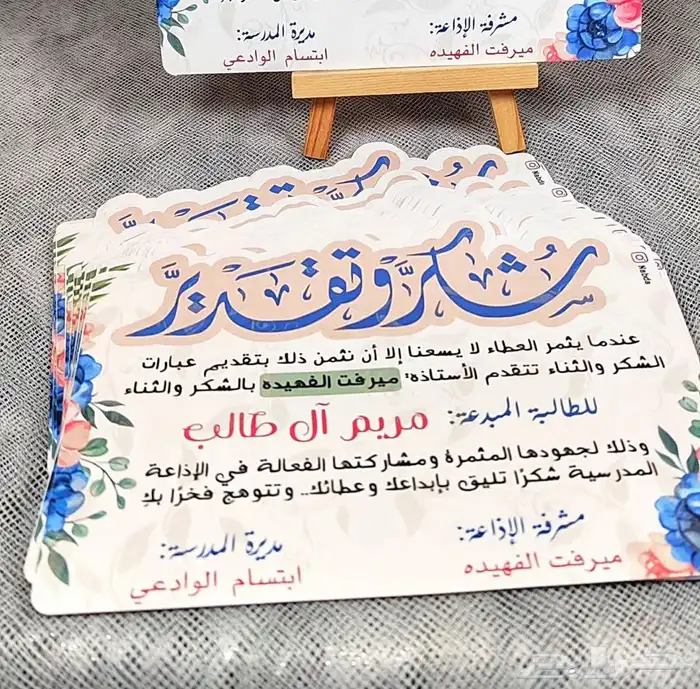 مشرفة الإذاعة:
ميرفت الفهيده
مديرة المدرسة:
ابتسام الوادعي
Nabda
Nabda
شكر وتقدير
عندما يثمر العطاء لا يسعنا إلا أن نثمن ذلك بتقديم عبارات
الشكر والثناء تتقدم الأستاذة: ميرفت الفهيدة بالشكر والثناء
للطالبة المبدعة: مريم آل طالب
وذلك لجهودها المثمرة ومشاركتها الفعالة في الإذاعة
المدرسية شكرًا تليق بإبداعك وعطائك.. وتتوهج فخرًا بكِ
مشرفة الإذاعة:
ميرفت الفهيده
مديرة المدرسة:
ابتسام الوادعي
حراج